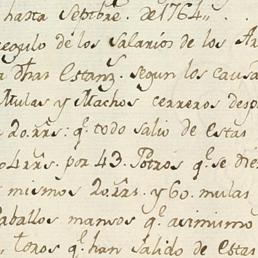 hasta Setbre. de 1764,,
regulo de los Salarios de los
dhas Estanz. segun los
Mulas y Machos cerreros
20.rrs: q.e todo salio de estas
04 rrs. por 43. Potros q.e se
mismos 20.rrs. y 60. mulas
Caballos mansos q.e asimismo
toros q.e han Salido de Estas